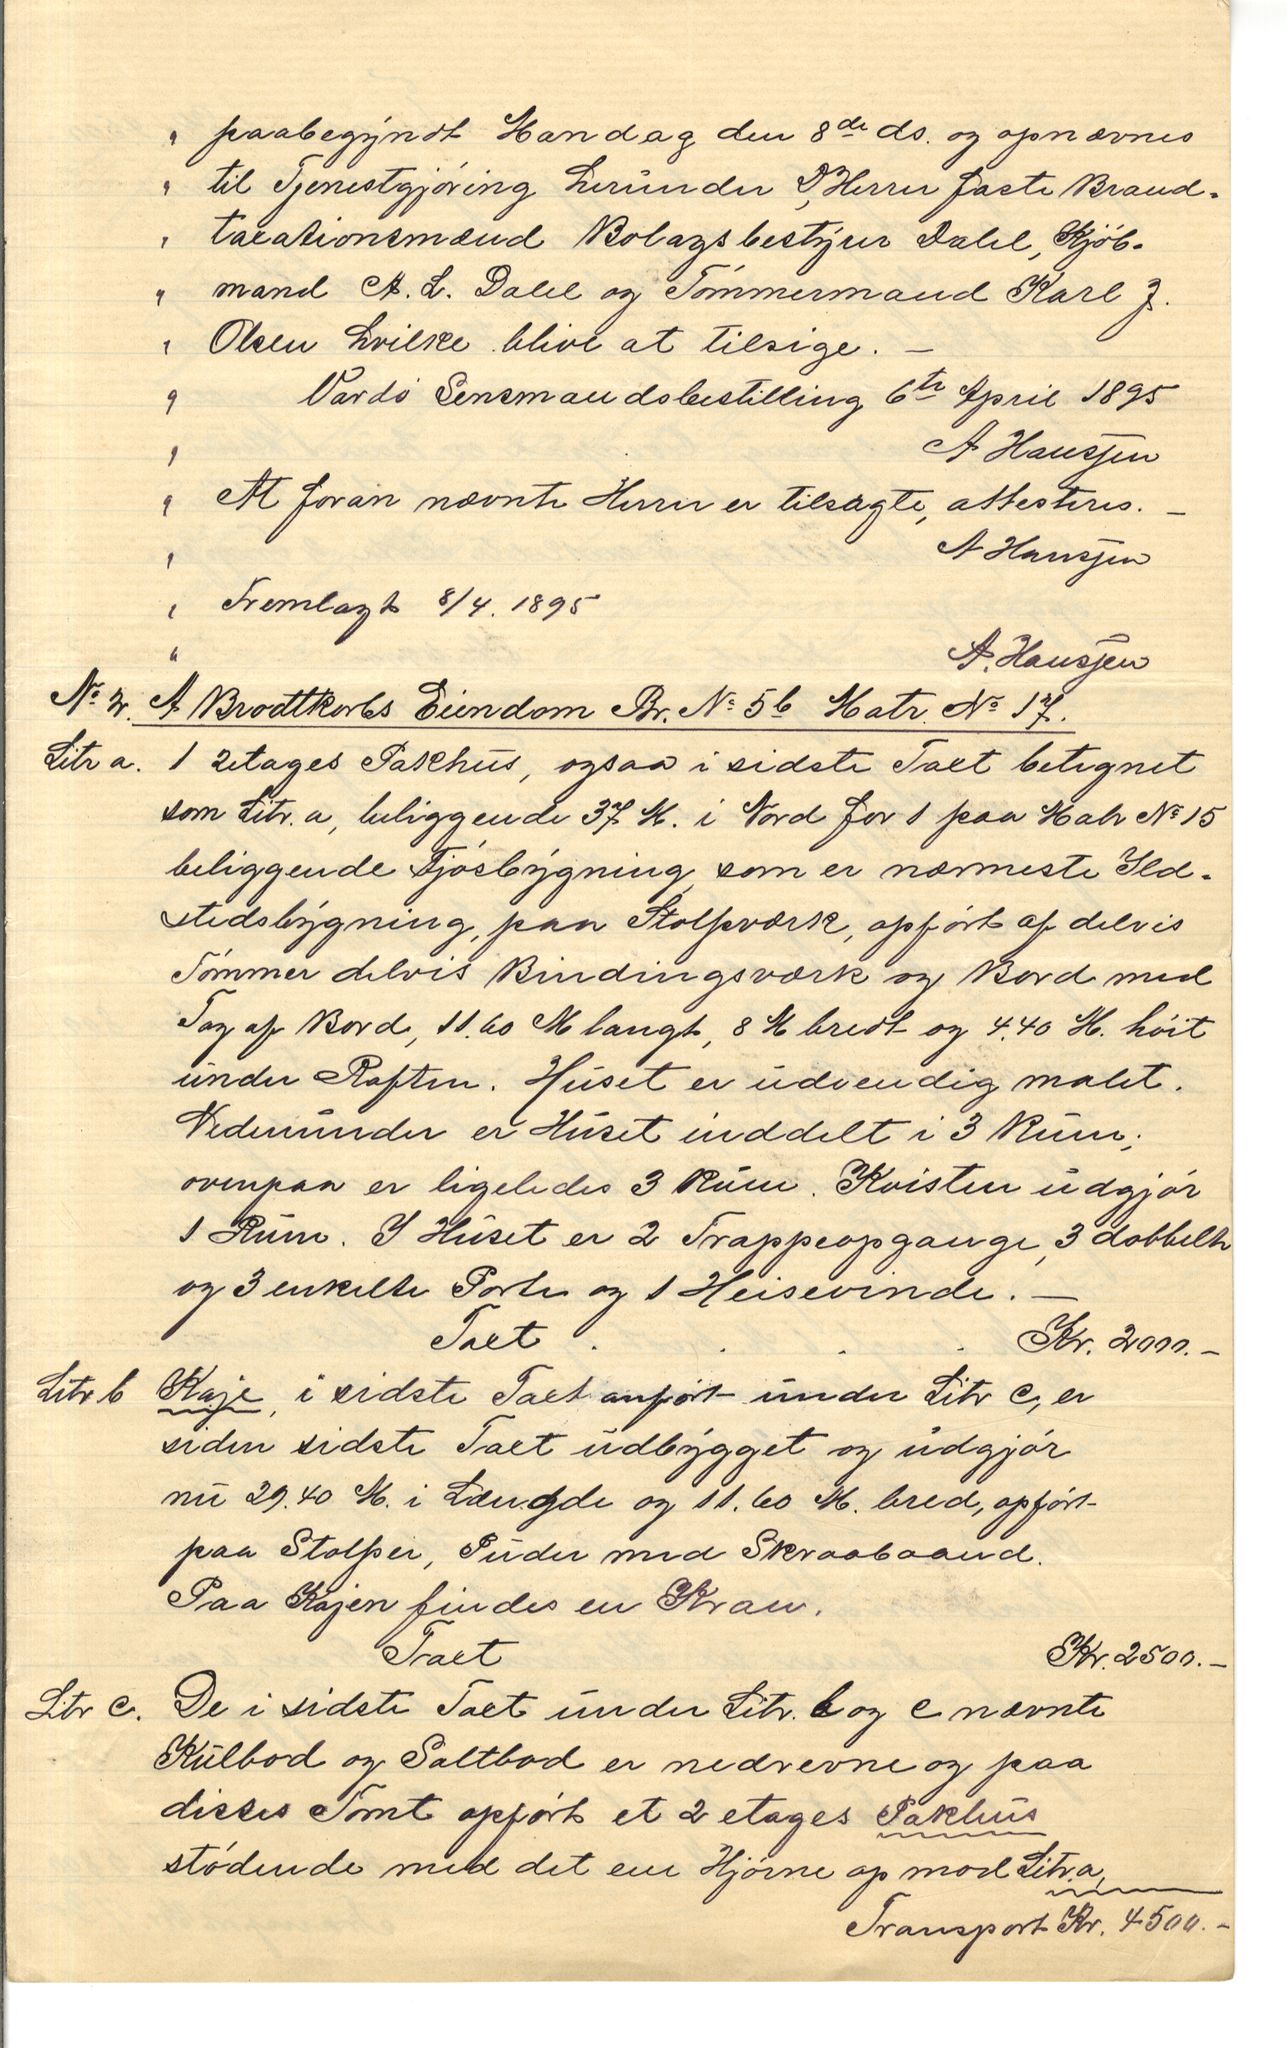 " paabegyndt Mandag den 8de ds. og opnævnes
" til Tjenestgjøring herunder D'Herrer faste Brand-
" taxationsmænd Bolagsbestyrer Dahl, Kjøb-
" mand A. L. Dahl og Tømmermand Karl J.
" Olsen hvilke blive at tilsige. —
" Vardø Lensmandsbestilling 6te April 1895
" A Hanssen
" At foran nævnte Herrer er tilsagte, attesteres. —
" A Hanssen
" Fremlagt 8/4. 1895
" A. Hanssen
No 2. A Brodtkorbs Eiendom Br. No 5b Matr. No 17.
Litr a. 1 2etages Pakhus, ogsaa i sidste Taxt betegnet
som Litr. a, beliggende 37 M. i Nord for 1 paa Matr No 15
beliggende Fjøsbygning, som er nærmeste Ild-
stedsbygning, paa Stolpværk, opført af delvis
Tømmer delvis Bindingsværk og Bord med
Tag af Bord, 11.60 M langt, 8 M bredt og 4.40 M. høit
under Raften. Huset er udvendig malet.
Nedenunder er Huset inddelt i 3 Rum;
ovenpaa er ligeledes 3 Rum. Kvisten udgjør
1 Rum. I Huset er 2 Trappeopgange, 3 dobbelte
og 3 enkelte Porte og 1 Heisevinde. —
Taxt . . . . Kr. 2000. —
Litr b Kaje, i sidste Taxt anført under Litr c, er
siden sidste Taxt udbygget og udgjør
nu 29.40 M. i Længde og 11.60 M. bred, opført
paa Stolper, Puder med Skraabaand.
Paa Kajen findes en Kran.
Taxt Kr. 2500. —
Litr c. De i sidste Taxt under Litr. b og c nævnte
Kulbod og Saltbod er nedrevne og paa
disses Tomt opført et 2 etages Pakhus
stødende med det ene Hjørne op mod Litr. a,
Transport Kr. 4500. —